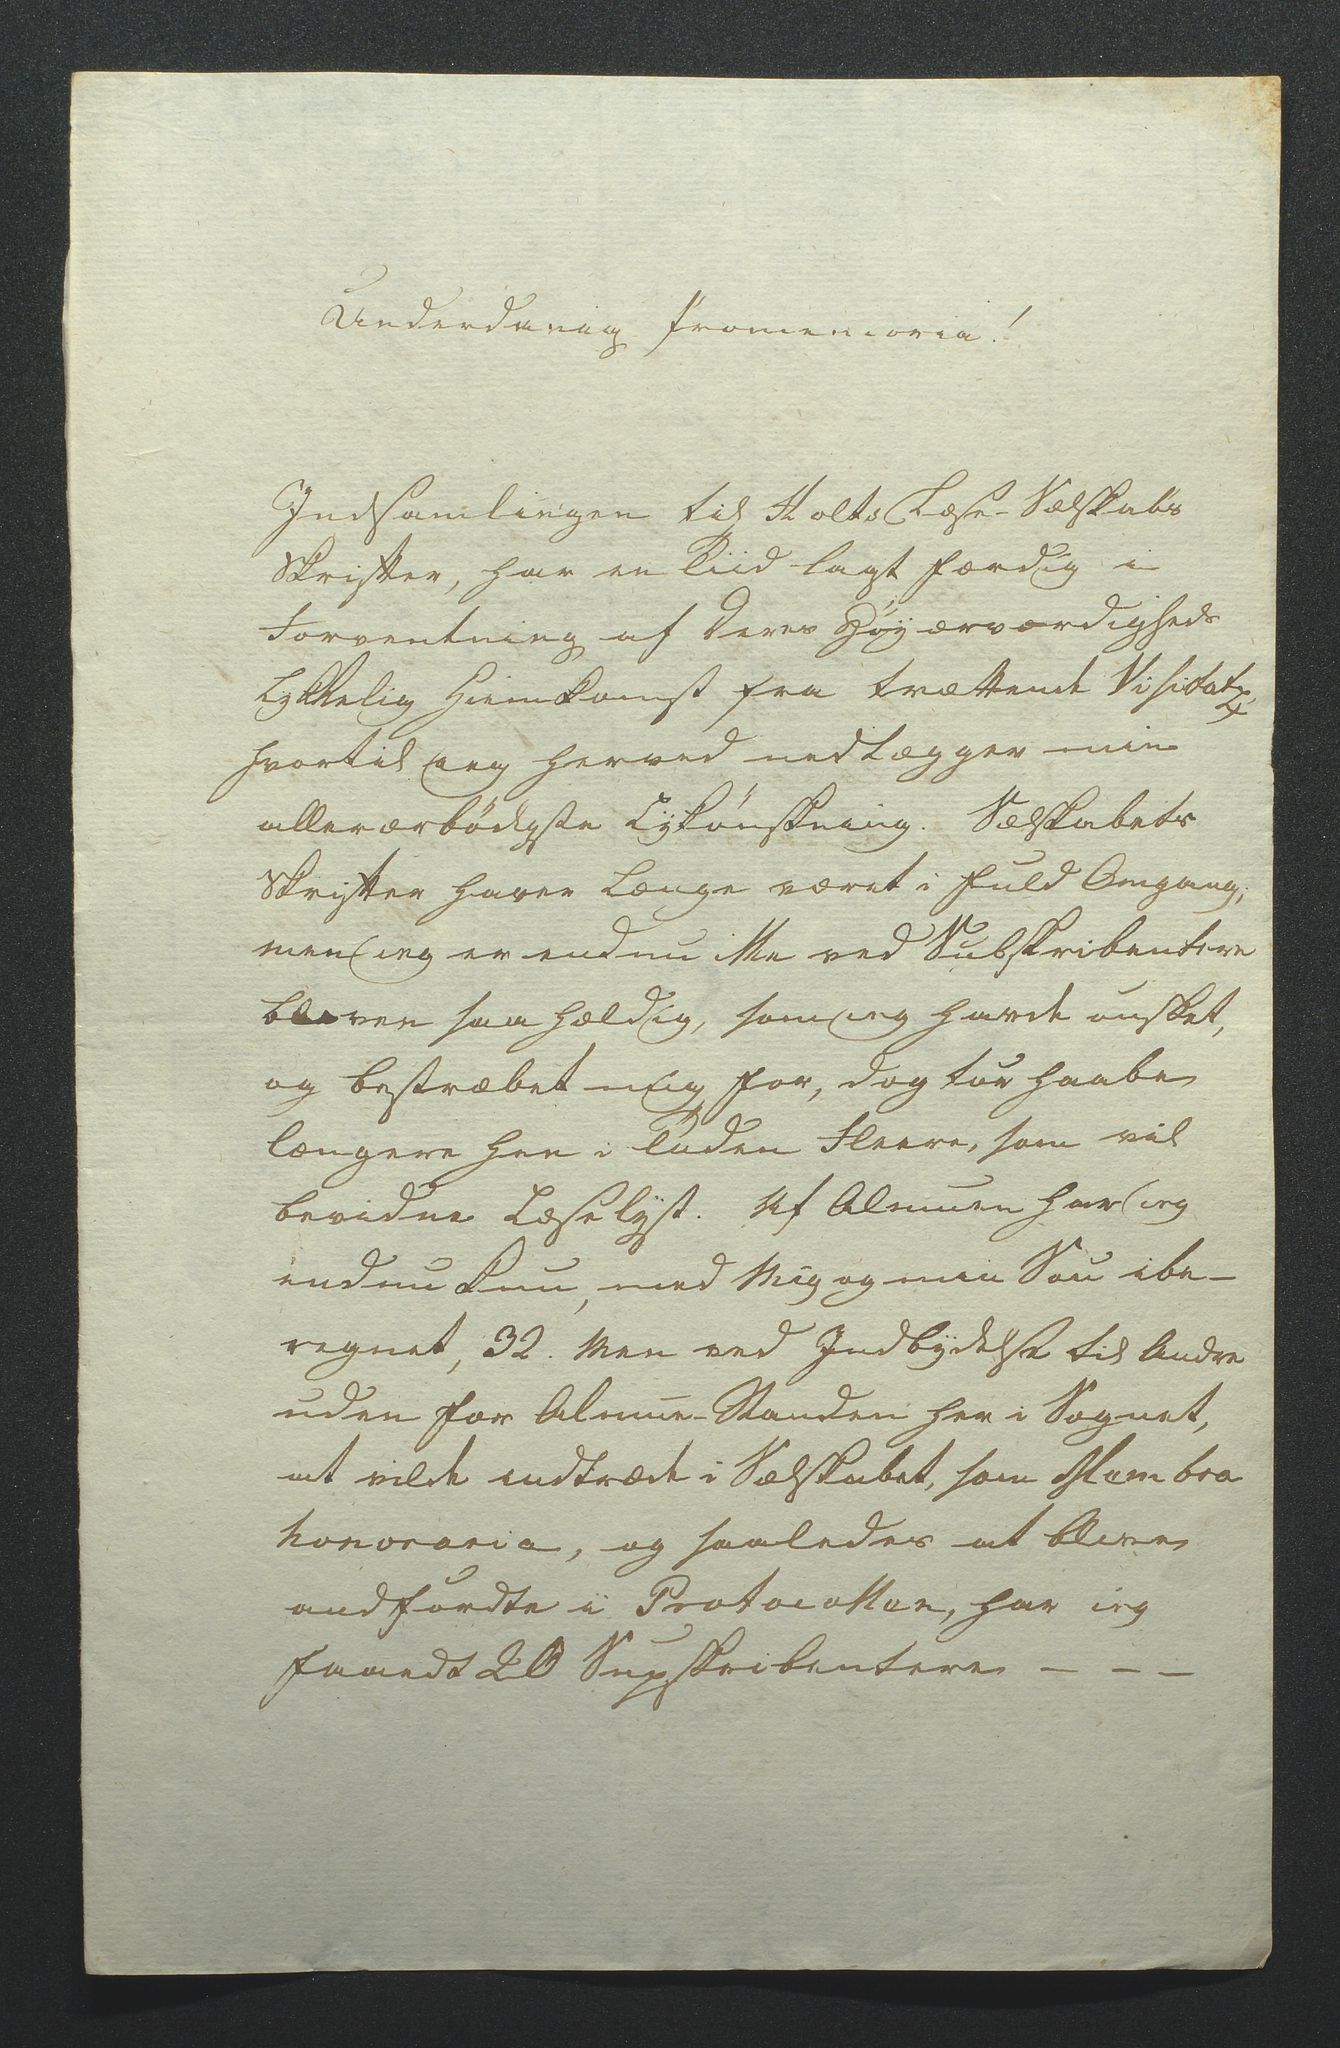 Underdanig Promemoria!
Indsamlingen til Holts Læse-Selskabs
Skrifter, har en Tiid lagt færdig i
Forventning af Deres Høyærværdigheds
Lykkelig Hiemkomst fra trættende Visitatz,
hvortil ieg herved nedlægger min
allerærbödigste Lykönskning. Selskabets
Skrifter haver længe været i fuld Omgang,
men ieg er endnu ikke ved Subskribentere
bleven saa heldig, som ieg havde ønsket,
og bestræbet mig for, dog tör haabe
længere hen i Tiiden Fleere, som vil
bevidne Læselyst. Af Almuen har ieg
endnu kun, med Mig og min Søn ibe-
regnet, 32. Men ved Indbydelse til Andre
uden for Almue-Standen her i Sognet,
at vilde indtræde i Selskabet, som Membra
honoraria, og saaledes at blive
andførdte i Protocollen, har ieg
faaedt 20 Supskribentere - - -